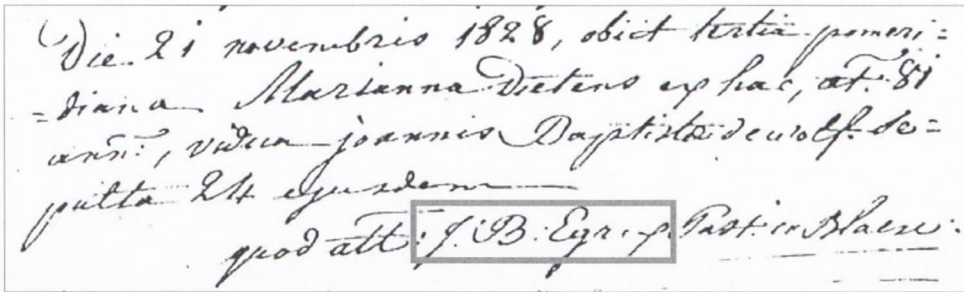 Die 21 novembris 1828, obiit tertia pomeri=
=diana Marianna Dietens ex hac, æt. 81
ann:, vidua joannis Baptistæ de wolf. se=
pulta 24 ejusdem
quod att: J: B: Past: in Blaesv: